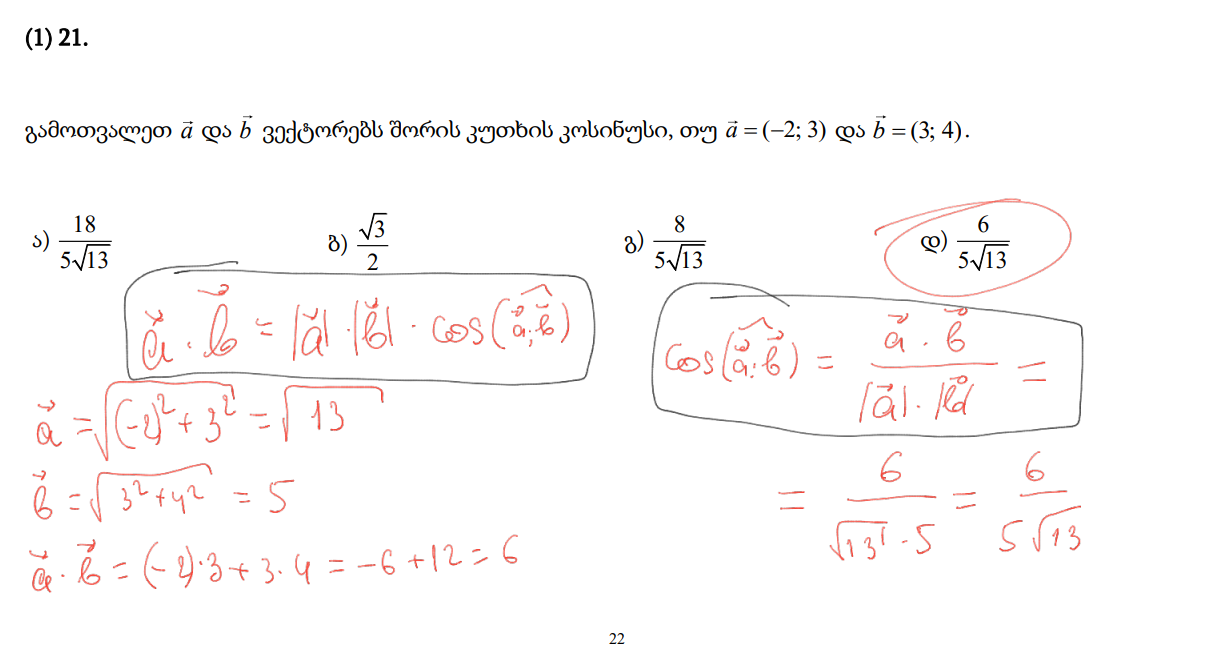 (1) 21.
გამოთვალეთ $\vec{a}$ და $\vec{b}$ ვექტორებს შორის კუთხის კოსინუსი, თუ $\vec{a}$ = (–2; 3) და $\vec{b}$ = (3; 4).
ა) $\frac{18}{5\sqrt{13}}$ ბ) $\frac{\sqrt{3}}{2}$ გ) $\frac{8}{5\sqrt{13}}$ დ) $\frac{6}{5\sqrt{13}}$
$\vec{a} \cdot \vec{b} = |\vec{a}| \cdot |\vec{b}| \cdot \cos(\widehat{\vec{a};\vec{b}})$
$\vec{a} = \sqrt{(-2)^2 + 3^2} = \sqrt{13}$
$\vec{b} = \sqrt{3^2 + 4^2} = 5$
$\vec{a} \cdot \vec{b} = (-2) \cdot 3 + 3 \cdot 4 = -6 + 12 = 6$
$\cos(\widehat{\vec{a};\vec{b}}) = \frac{\vec{a} \cdot \vec{b}}{|\vec{a}| \cdot |\vec{b}|} =$
$= \frac{6}{\sqrt{13} \cdot 5} = \frac{6}{5\sqrt{13}}$
22